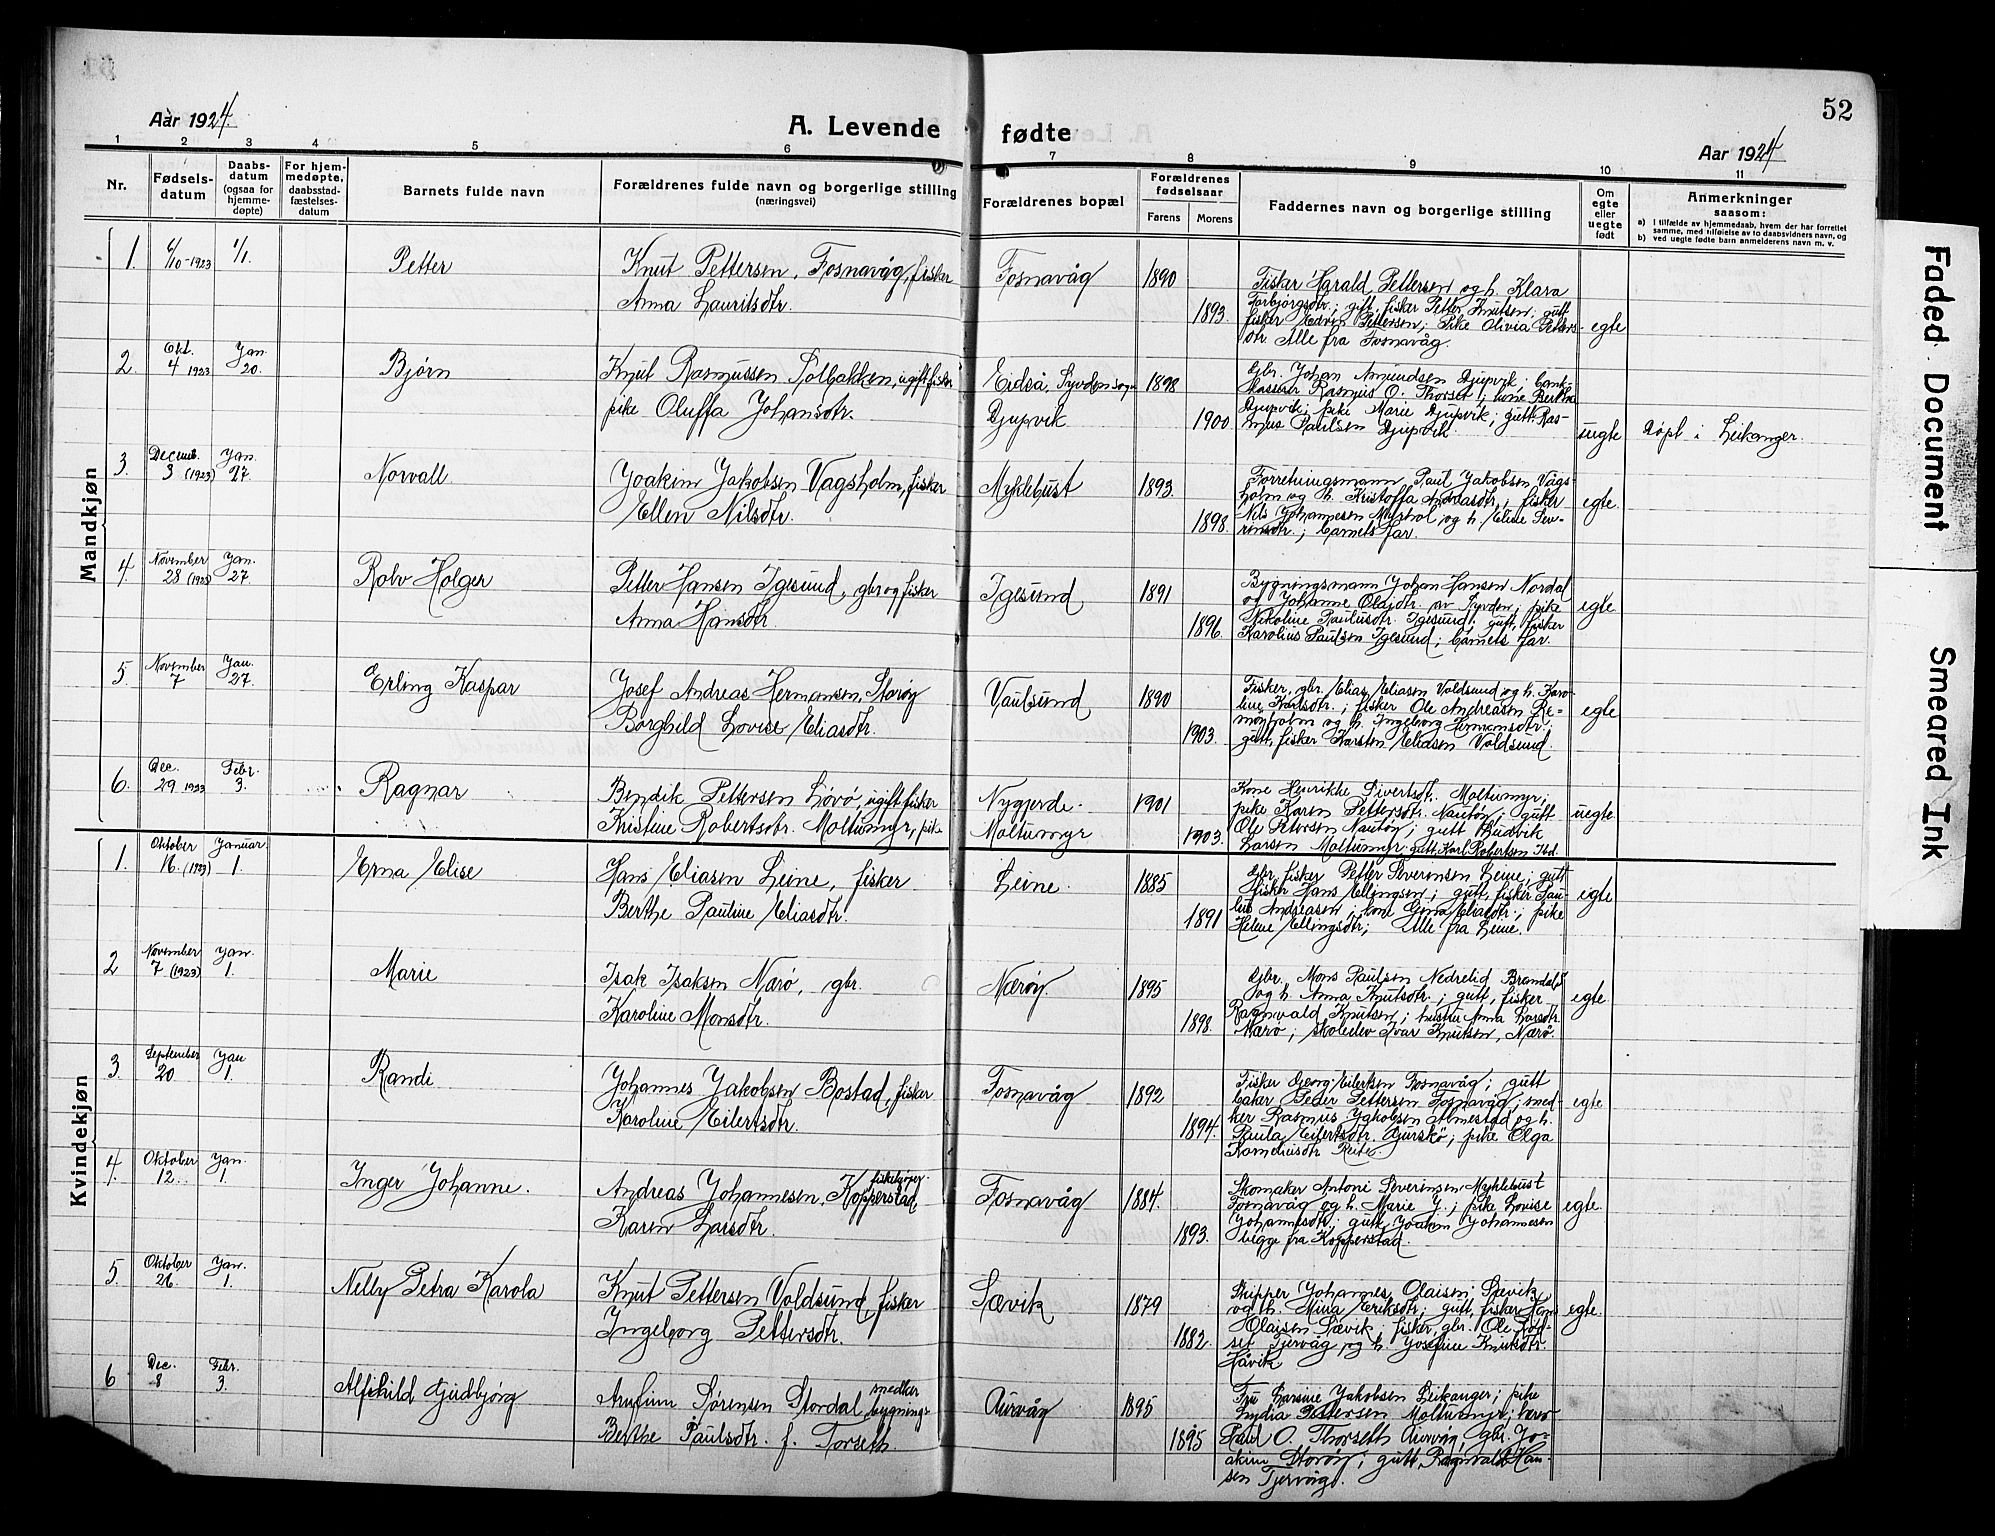 52
Aar 1924.
A. Levende fødte
Aar 1924
1 2 3 4 5 6 7 8 9 10 11
Nr.
Fødsels-
datum
Daabs-
datum
(ogsaa for
hjemme-
døpte)
For hjem-
medøpte,
daabsstad-
fæstelses-
datum
Barnets fulde navn
Forældrenes fulde navn og borgerlige stilling
(næringsvei)
Forældrenes bopæl
Forældrenes
fødselsaar
Farens
Morens
Faddernes navn og borgerlige stilling
Om
egte
eller
uegte
født
Anmerkninger
saasom:
a) I tilfælde av hjemmedaab, hvem der har forrettet
samme, med tilføielse av to daabsvidners navn, og
b) ved uegte fødte barn anmelderens navn m. v.
Mandkjøn
1. 6/10-1923 1/1. Petter Knut Pettersen, Fosnavåg, fisker Fosnavåg 1890 Fisker Harald Pettersen og h. Klara
Anna Lauritsdtr. Torbjørgsdtr.; gift fisker Petter Knutsen; gutt
1893. fisker Edvin Pettersen; Pike Olivia Petters-
dtr. Alle fra Fosnavåg. egte
2 Okt. 4 1923 Jan. 20. Bjørn Knut Rasmussen Solbakken, ugift fisker Eidså, Syvden sogn 1898 Gbr. Johan Amundsen Djupvik; bank-
kasserer Rasmus O. Thorset; kone Berthe
pike Oluffa Johansdtr. Djupvik 1900 Djupvik; pike Marie Djupvik; gutt Ras-
mus Paulsen Djupvik. uegte Døpt i Leikanger.
3. Decemb. 3 (1923) Jan. 27. Norvall Joakim Jakobsen Vagsholm, fisker Myklebust 1893. Forretningsmann Paul Jakobsen Vågs-
holm og h. Kristoffa Andreasdtr.; fisker
Ellen Nilsdtr. 1898. Nils Johannesen Myrhol og h. Elise Sev-
rinsdtr.; barnets far. egte.
4. November 28 (1923) Jan. 27. Rolv Holger Petter Hansen Igesund, gbr og fisker Igesund 1891 Bygningsmann Johan Hansen Nordal
og Johanne Olajdtr. av Syvden; pike
Anna Hansdtr. 1896. Nikoline Paulusdtr. Igesund; gutt, fisker
Karolius Paulsen Igesund; barnets far. egte
5. November 7 Jan. 27. Erling Kaspar Josef Andreas Hermansen, Storøy Vaulsund 1890 Fisker, gbr. Elias Eliasen Voldsund og h. Karo-
line Karlsdtr.; fisker Ole Andreasen Re-
møyholm og h. Ingeborg Hermansdtr.
Borghild Lovise Eliasdtr. 1903. gutt, fisker Karsten Eliasen Voldsund. egte
6. Dec. 29 1923 Febr. 3. Ragnar Bendik Pettersen Løvø, ugift fisker Nygjerde. 1901 Kone Henrikke Sivertsdt. Moltumyr;
pike Karen Pettersdtr. Nautøy; gutt
Kristine Robertsdtr. Moltumyr, pike Moltumyr 1903. Ole Petersen Nautøy; gutt Ludvik
Larsen Moltumyr gutt Karl Robertsen Ibd. uegte
Kvindekjøn
1. Oktober 16. (1923) Januar. 1. Erna Elise Hans Eliasen Leine, fisker Leine. 1885 Gbr, fisker Petter Severinsen Leine; gutt
fisker Hans Ellingsen; gutt, fisker Pau-
Berthe Pauline Eliasdtr. 1891 lus Andreasen, kone Gina Eliasdtr.; pike
Helene Ellingsdtr; Alle fra Leine. egte
2 November 7 (1923) Jan. 1. Marie Isak Isaksen Nærø, gbr. Nærøy. 1895 Gbr. Mons Paulsen Nedrelid Brandals
og h. Anna Knutsdtr.; gutt, fisker
Karoline Monsdtr. 1898. Ragnvald Knutsen; hustru Anna Larsdtr.
Nærø; skoleelev Ivar Knutsen, Nærø. egte
3. September 20 Jan 1. Randi Johannes Jakobsen Bostad, fisker Fosnavåg 1892 Fisker Georg Eilertsen Fosnavåg; gutt
baker Peder Pettersen Fosnavåg; sned-
Karoline Eilertsdtr. 1894. ker Rasmus Jakobsen Almestad og h.
Paula Eilertsdtr. Gurskø; pike Olga
Korneliusdtr Reite. egte
4. Oktober 12. Jan. 1. Inger Johanne. Andreas Johannesen, Kopperstad, fiskekjøper Fosnavåg 1884. Skomaker Antoni Severinsen Myklebust
Fosnavåg og h. Marie J.; pike Lovise
Karen Larsdtr. 1893. Johannesdtr; gutt, Joakim Johannesen
begge fra Kopperstad. egte.
5. Oktober 26 Jan. 1. Nelly Petra Karola Knut Pettersen Voldsund, fisker Sævik 1879 Skipper Johannes Olaisen Sævik
og h. Mina Eriksdtr; gutt, fisker Hans
Ingeborg Pettersdtr. 1882. Olaisen Sævik; fisker, gbr. Ole Lød-
set Tjervåg og h. Josefine Knutsdtr.
Håvik egte.
6 Dec. 8 Febr. 3. Alfhild Gudbjørg Arnfinn Sørensen Stordal, snedker bygnings- Aurvåg 1895 Fru Larsine Jakobsen Leikanger; pike
Lydia Pettersen Moltumyr; lærer
Berthe Paulsdtr. f. Torseth. 1895 Paul O. Thorseth Aurvåg, gbr. Jo-
akim Storøy; gutt Ragnvald Han-
sen Tjervåg.
Faded Document Smeared Ink